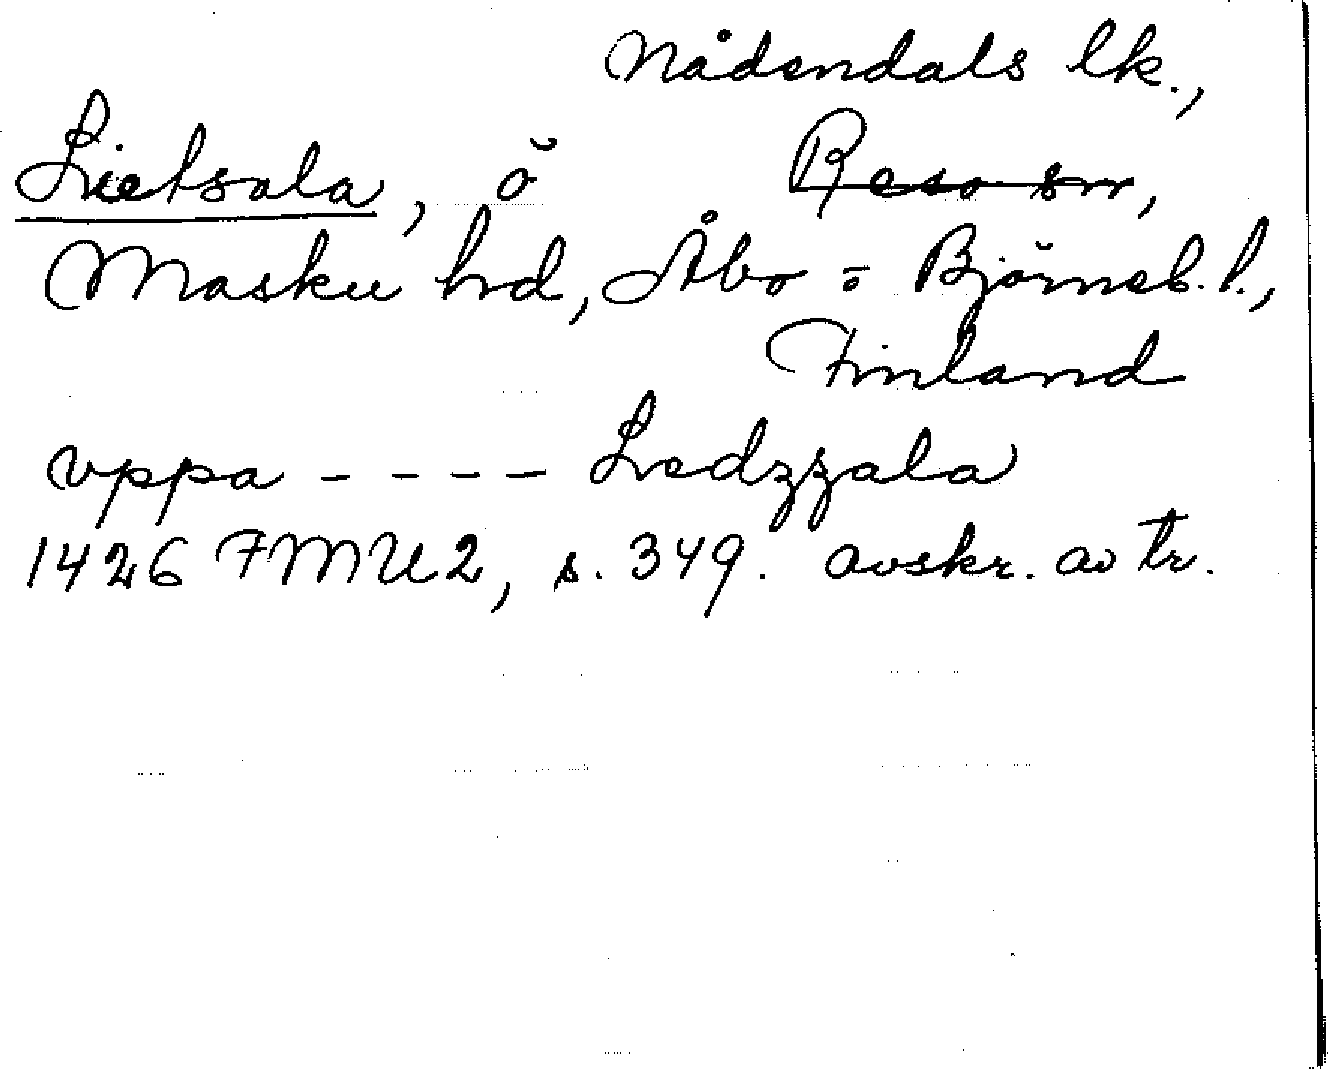 Nådendals lk.,
Lietsala, ö Reso sn,
Masku hd, Åbo o Björneb. l.,
Finland
vppa - - - - Ledzzala
1426 FMU2, s. 349. avskr. av tr.